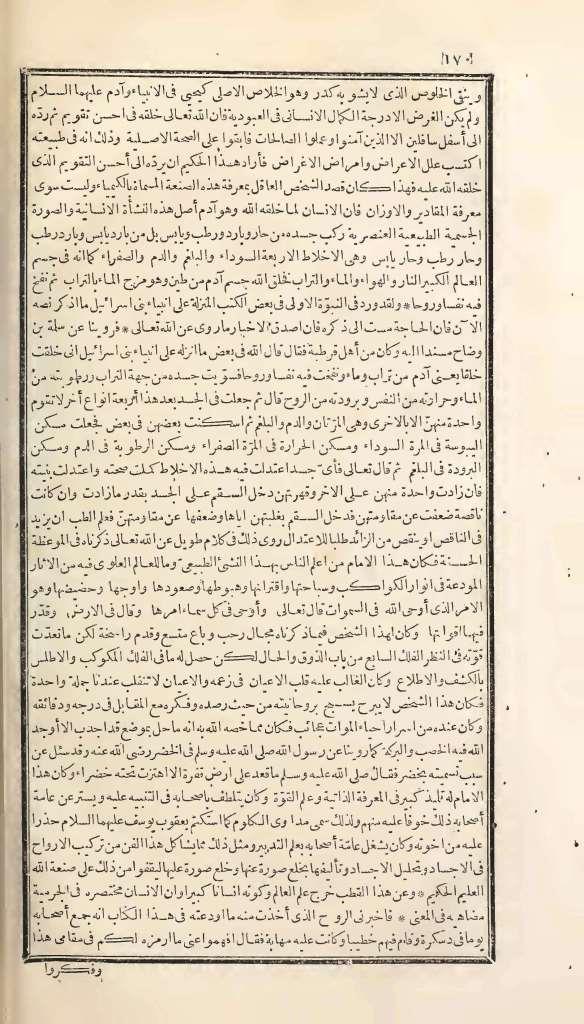 ١٧٠
وينتقى الخلوص الذى لا يشوبه كدر وهو الخلاص الاصلى كيحيى فى الانبياء وآدم عليهما السلام
ولم يكن الغرض الا درجة الكمال الانسانى فى العبودية فان الله تعالى خلقه فى احسن تقويم ثم رده
الى أسفل سافلين الا الذين آمنوا وعملوا الصالحات فابقوا على الصحة الاصلية وذلك انه فى طبيعته
اكتسب علل الاعراض وامراض الاغراض فأراد هذا الحكيم ان يرده الى أحسن التقويم الذى
خلقه الله عليه فهذا كان قصد الشخص العاقل بمعرفة هذه الصنعة المسماة بالكيمياء وليست سوى
معرفة المقادير والاوزان فان الانسان لما خلقه الله وهو آدم أصل هذه النشأة الانسانية والصورة
الجسمية الطبيعية العنصرية ركب جسده من حار وبارد ورطب ويابس بل من بارد يابس وبارد رطب
وحار رطب وحار يابس وهى الاخلاط الاربعة السوداء والبلغم والدم والصفراء كما انه فى جسم
العالم الكبير النار والهواء والماء والتراب فخلق الله جسم آدم من طين وهو مزج الماء بالتراب ثم نفخ
فيه نفسا وروحا * ولقد ورد فى النبوة الاولى فى بعض الكتب المنزلة على انبياء بنى اسرائيل ما أذكر نصه
الآن فان الحاجة مست الى ذكره فان اصدق الاخبار ما روى عن الله تعالى * فروينا عن سلمة بن
وضاح مسندا اليه وكان من أهل قرطبة فقال قال الله فى بعض ما انزله على انبياء بنى اسرائيل انى خلقت
خلقا يعنى آدم من تراب وماء ونفخت فيه نفسا وروحا فسويت جسده من جهة التراب ورطوبته من
الماء وحرارته من النفس وبرودته من الروح قال ثم جعلت فى الجسد بعد هذا أربعة انواع أخر لا تقوم
واحدة منهن الا بالاخرى وهى المرتان والدم والبلغم ثم اسكنت بعضهن فى بعض فجعلت مسكن
اليبوسة فى المرة السوداء ومسكن الحرارة فى المرة الصفراء ومسكن الرطوبة فى الدم ومسكن
البرودة فى البلغم ثم قال تعالى فأى جسد اعتدلت فيه هذه الاخلاط كملت صحته واعتدلت بنيته
فان زادت واحدة منهن على الاخر وقهرتهن دخل السقم على الجسد بقدر ما زادت وان كانت
ناقصة ضعفت عن مقاومتهن فدخل السقم بغلبتهن اياها وضعفها عن مقاومتهن فعلم الطب ان يزيد
فى الناقص او ينقص من الزائد طلبا للاعتدال روى ذلك فى كلام طويل عن الله تعالى ذكرناه فى الموعظة
الحسنة فكان هذا الامام من اعلم الناس بهذا النشئ الطبيعى وما للعالم العلوى فيه من الآثار
المودعة فى انوار الكواكب وسباحتها واقتراناتها وهبوطها وصعودها واوجها وحضيضها وهو
الامر الذى أوحى الله فى السموات قال تعالى وأوحى فى كل سماء امرها وقال فى الارض وقدر
فيها اقواتها وكان لهذا الشخص فيما ذكرناه مجال رحب وباع متسع وقدم راسخة لكن ما تعدت
قوته فى النظر الفلك السابع من باب الذوق والحال لكن حصل له ما فى الفلك المكوكب والاطلس
بالكشف والاطلاع وكان الغالب عليه قلب الاعيان فى زعمه والاعيان لا تنقلب عندنا جملة واحدة
فكان هذا الشخص لا يبرح يسبح بروحانيته من حيث رصده وفكره مع المقابل فى درجه ودقائقه
وكان عنده من اسرار احياء الموات عجائب فكان مما خصه الله به انه ما حل بموضع قد اجدب الا أوجد
الله فيه الخصب والبركة كما روينا عن رسول الله صلى الله عليه وسلم فى الخضر رضى الله عنه وقد سئل عن
سبب تسميته بخضر فقال صلى الله عليه وسلم ما قعد على ارض نفرة الا اهتزت تحته خضراء وكان هذا
الامام له تلميذ كبير فى المعرفة الذاتية وعلم القوة وكان يتلطف باصحابه فى التنبيه عليه ويستر عن عامة
أصحابه ذلك خوفا عليه منهم ولذلك سمى مداوى الكلوم كما استكتم يعقوب يوسف عليهما السلام حذرا
عليه من اخوته وكان يشغل عامة أصحابه بعلم التدبير ومثل ذلك مما يشاكل هذا الفن من تركيب الارواح
فى الاجساد وتحليل الاجساد وتأليفها بخلع صورة عنها وخلع صورة عليها ليقفوا من ذلك على صنعة الله
العليم الحكيم * وعن هذا القطب خرج علم العالم وكونه انسانا كبيرا وان الانسان مختصره فى الجرمية
مضاهيه فى المعنى * فاخبرنى الروح الذى أخذت منه ما اودعته فى هذا الكتاب انه جمع أصحابه
يوما فى دسكرة وقام فيهم خطيبا وكانت عليه مهابة فقال افهموا عنى ما ارمزه لكم فى مقامى هذا
وفكروا